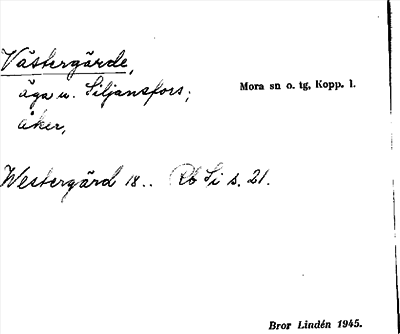 Västergärde,
äga u. Siljansfors;
Mora sn o. tg, Kopp. l.
åker,
Westergärd 18.. Rb Si s. 21.
Bror Lindén 1945.